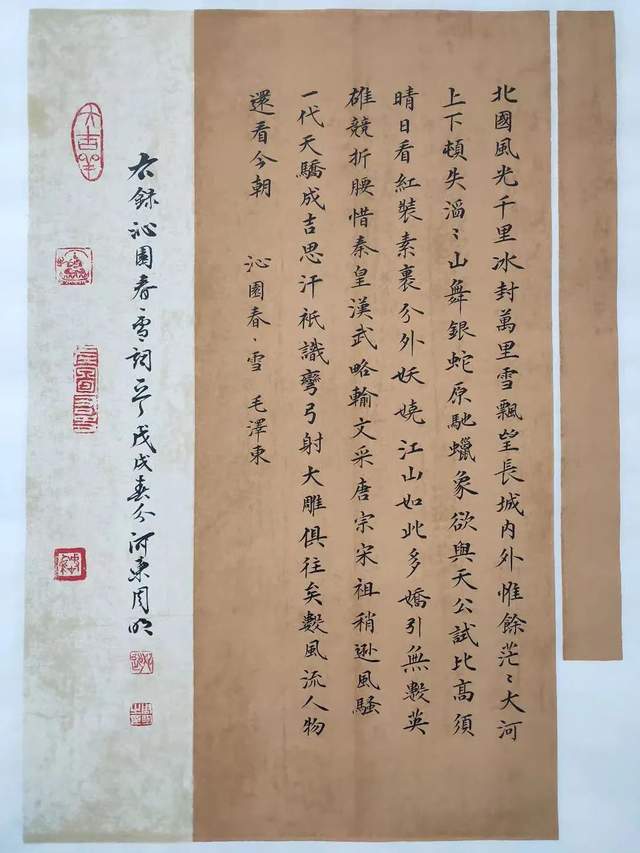 北國風光千里冰封萬里雪飄望長城內外惟餘茫〻大河
上下頓失滔〻山舞銀蛇原馳蠟象欲與天公試比高須
晴日看紅裝素裹分外妖嬈江山如此多嬌引無數英
雄競折腰惜秦皇漢武略輸文采唐宗宋祖稍遜風騷
一代天驕成吉思汗祇識彎弓射大雕俱往矣數風流人物
還看今朝 沁園春·雪 毛澤東
右錄沁園春·雪詞一 戊戌春分河東周明
大吉羊